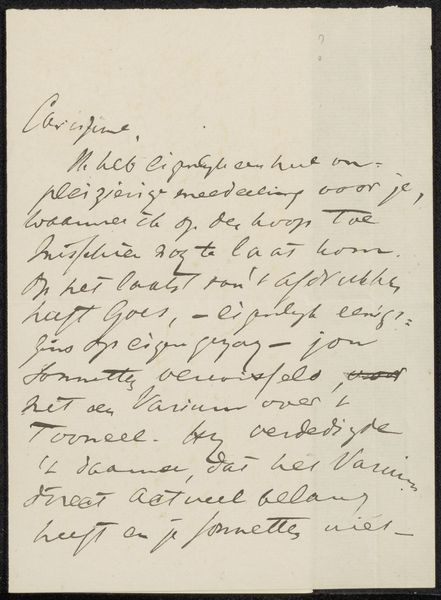 ?
Carissime,
Ik heb eigenlijk een heel on=
pleizierige mededeeling voor je,
waarmee ik op den hoop toe
misschien nog te laat kom.
Op het laatst van 't afdrukken
heeft Goes, – eigenlijk eenigs=
zins op eigen gezag – jou
sonnetten verwisseld, voor
met een Varium over 't
Tooneel. Hij verdedigde
't daarmee, dat het Varium
direct actueel belang
heeft en je sonnetten niet –